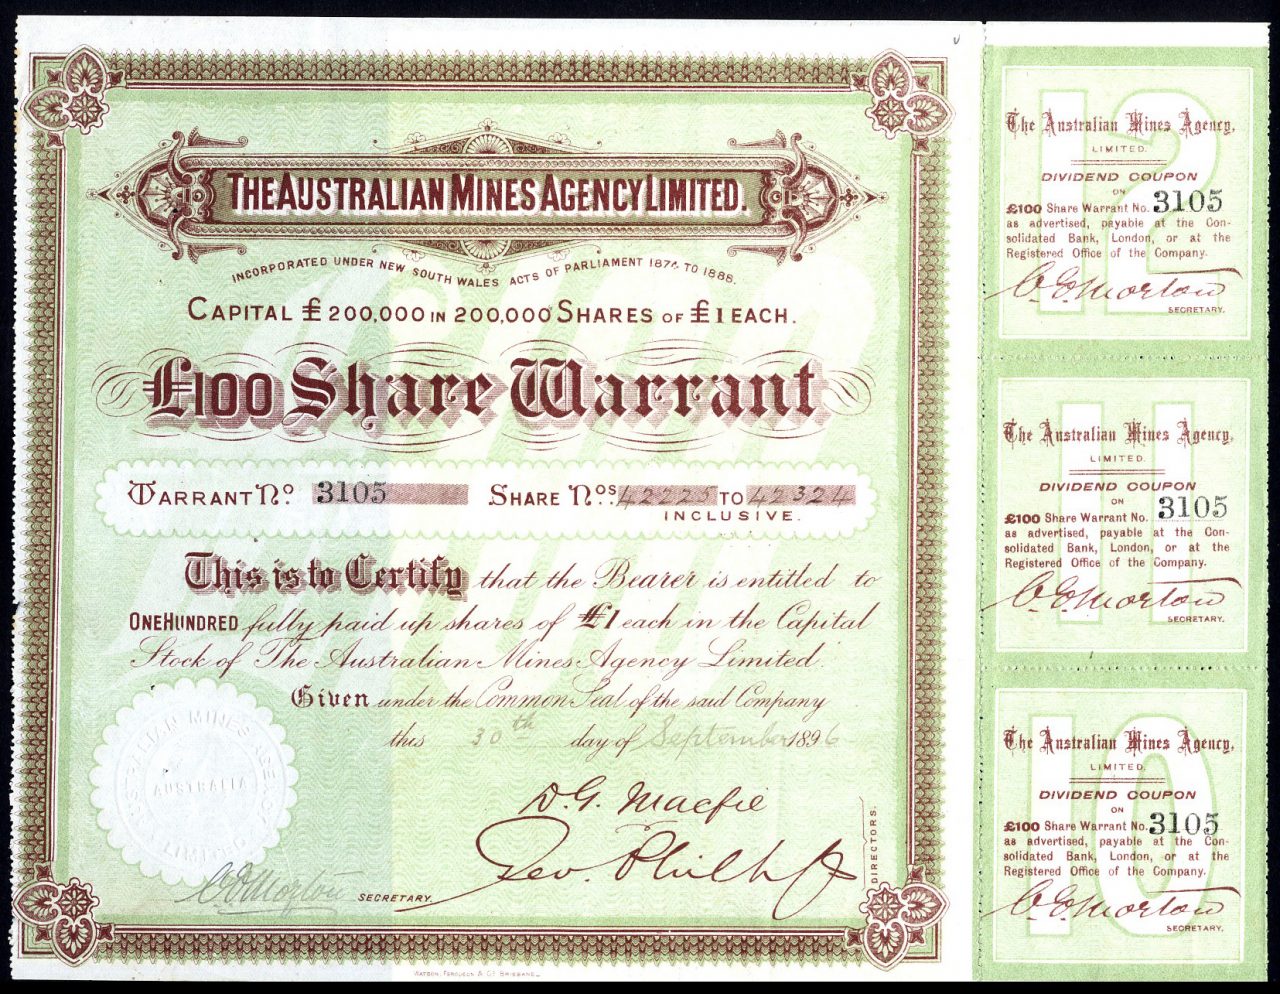 THE AUSTRALIAN MINES AGENCY LIMITED.
INCORPORATED UNDER NEW SOUTH WALES ACTS OF PARLIAMENT 1874 TO 1888.
CAPITAL £200,000 IN 200,000 SHARES OF £1 EACH.
£100 Share Warrant
WARRANT No. 3105 SHARE Nos. 42225 TO 42324
INCLUSIVE.
This is to Certify that the Bearer is entitled to
ONE HUNDRED fully paid up shares of £1 each in the Capital
Stock of The Australian Mines Agency Limited.
Given under the Common Seal of the said Company
this 30th day of September 1896
AUSTRALIAN MINES AGENCY
AUSTRALIA
LIMITED
D. G. Macfie
Geo. Phillips
DIRECTORS.
C E Morton SECRETARY.
WATSON, FERGUSON & Co BRISBANE.
12
The Australian Mines Agency,
LIMITED.
DIVIDEND COUPON
ON
£100 Share Warrant No. 3105
as advertised, payable at the Con-
solidated Bank, London, or at the
Registered Office of the Company.
C. E. Morton
SECRETARY.
11
The Australian Mines Agency,
LIMITED.
DIVIDEND COUPON
ON
£100 Share Warrant No. 3105
as advertised, payable at the Con-
solidated Bank, London, or at the
Registered Office of the Company.
C. E. Morton
SECRETARY.
10
The Australian Mines Agency,
LIMITED.
DIVIDEND COUPON
ON
£100 Share Warrant No. 3105
as advertised, payable at the Con-
solidated Bank, London, or at the
Registered Office of the Company.
C. E. Morton
SECRETARY.